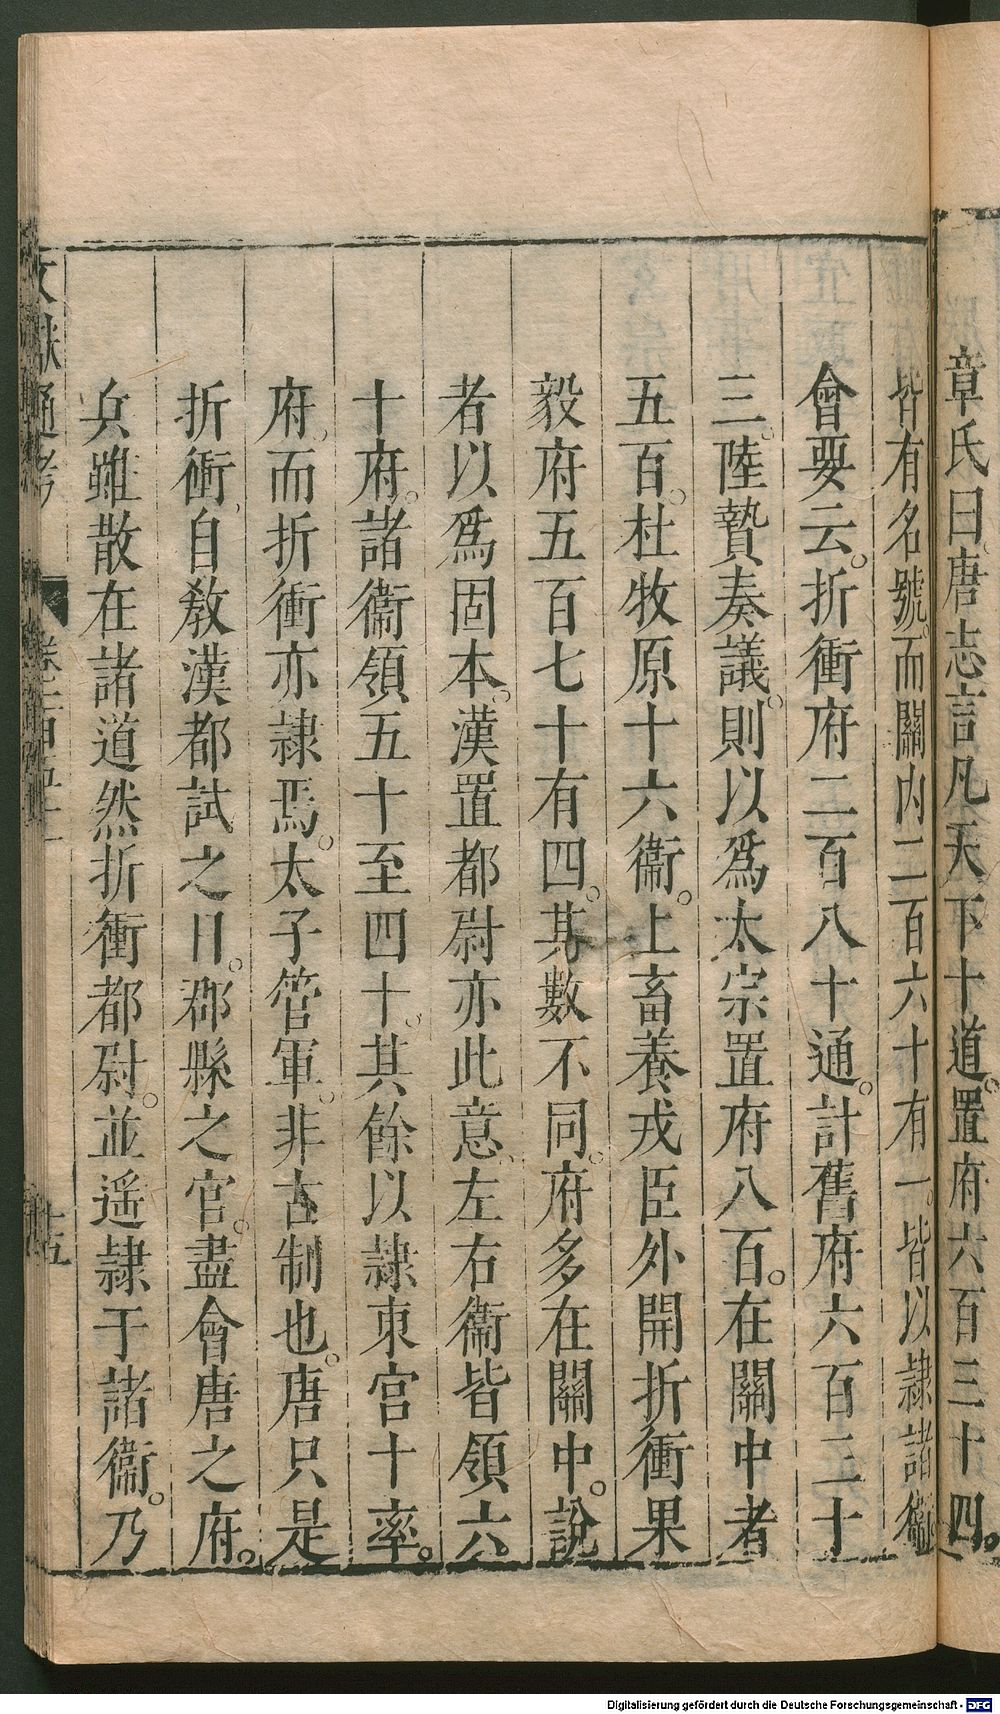 章氏曰唐志言凡天下十道置府六百三十四
皆有名號而關內二百六十有一皆以隷諸衞
會要云折衝府二百八十通計舊府六百三十
三陸贄奏議則以爲太宗置府八百在關中者
五百杜牧原十六衞上畜養戎臣外開折衝果
毅府五百七十有四其數不同府多在關中說
者以爲固本漢置都尉亦此意左右衞皆領六
十府諸衞領五十至四十其餘以隷東宮十率
府而折衝亦隷焉太子管軍非古制也唐只是
折衝自教漢都試之日郡縣之官盡會唐之府
兵雖散在諸道然折衝都尉並遥隷于諸衞乃
文獻通考
十五
Digitalisierung gefördert durch die Deutsche Forschungsgemeinschaft - DFG